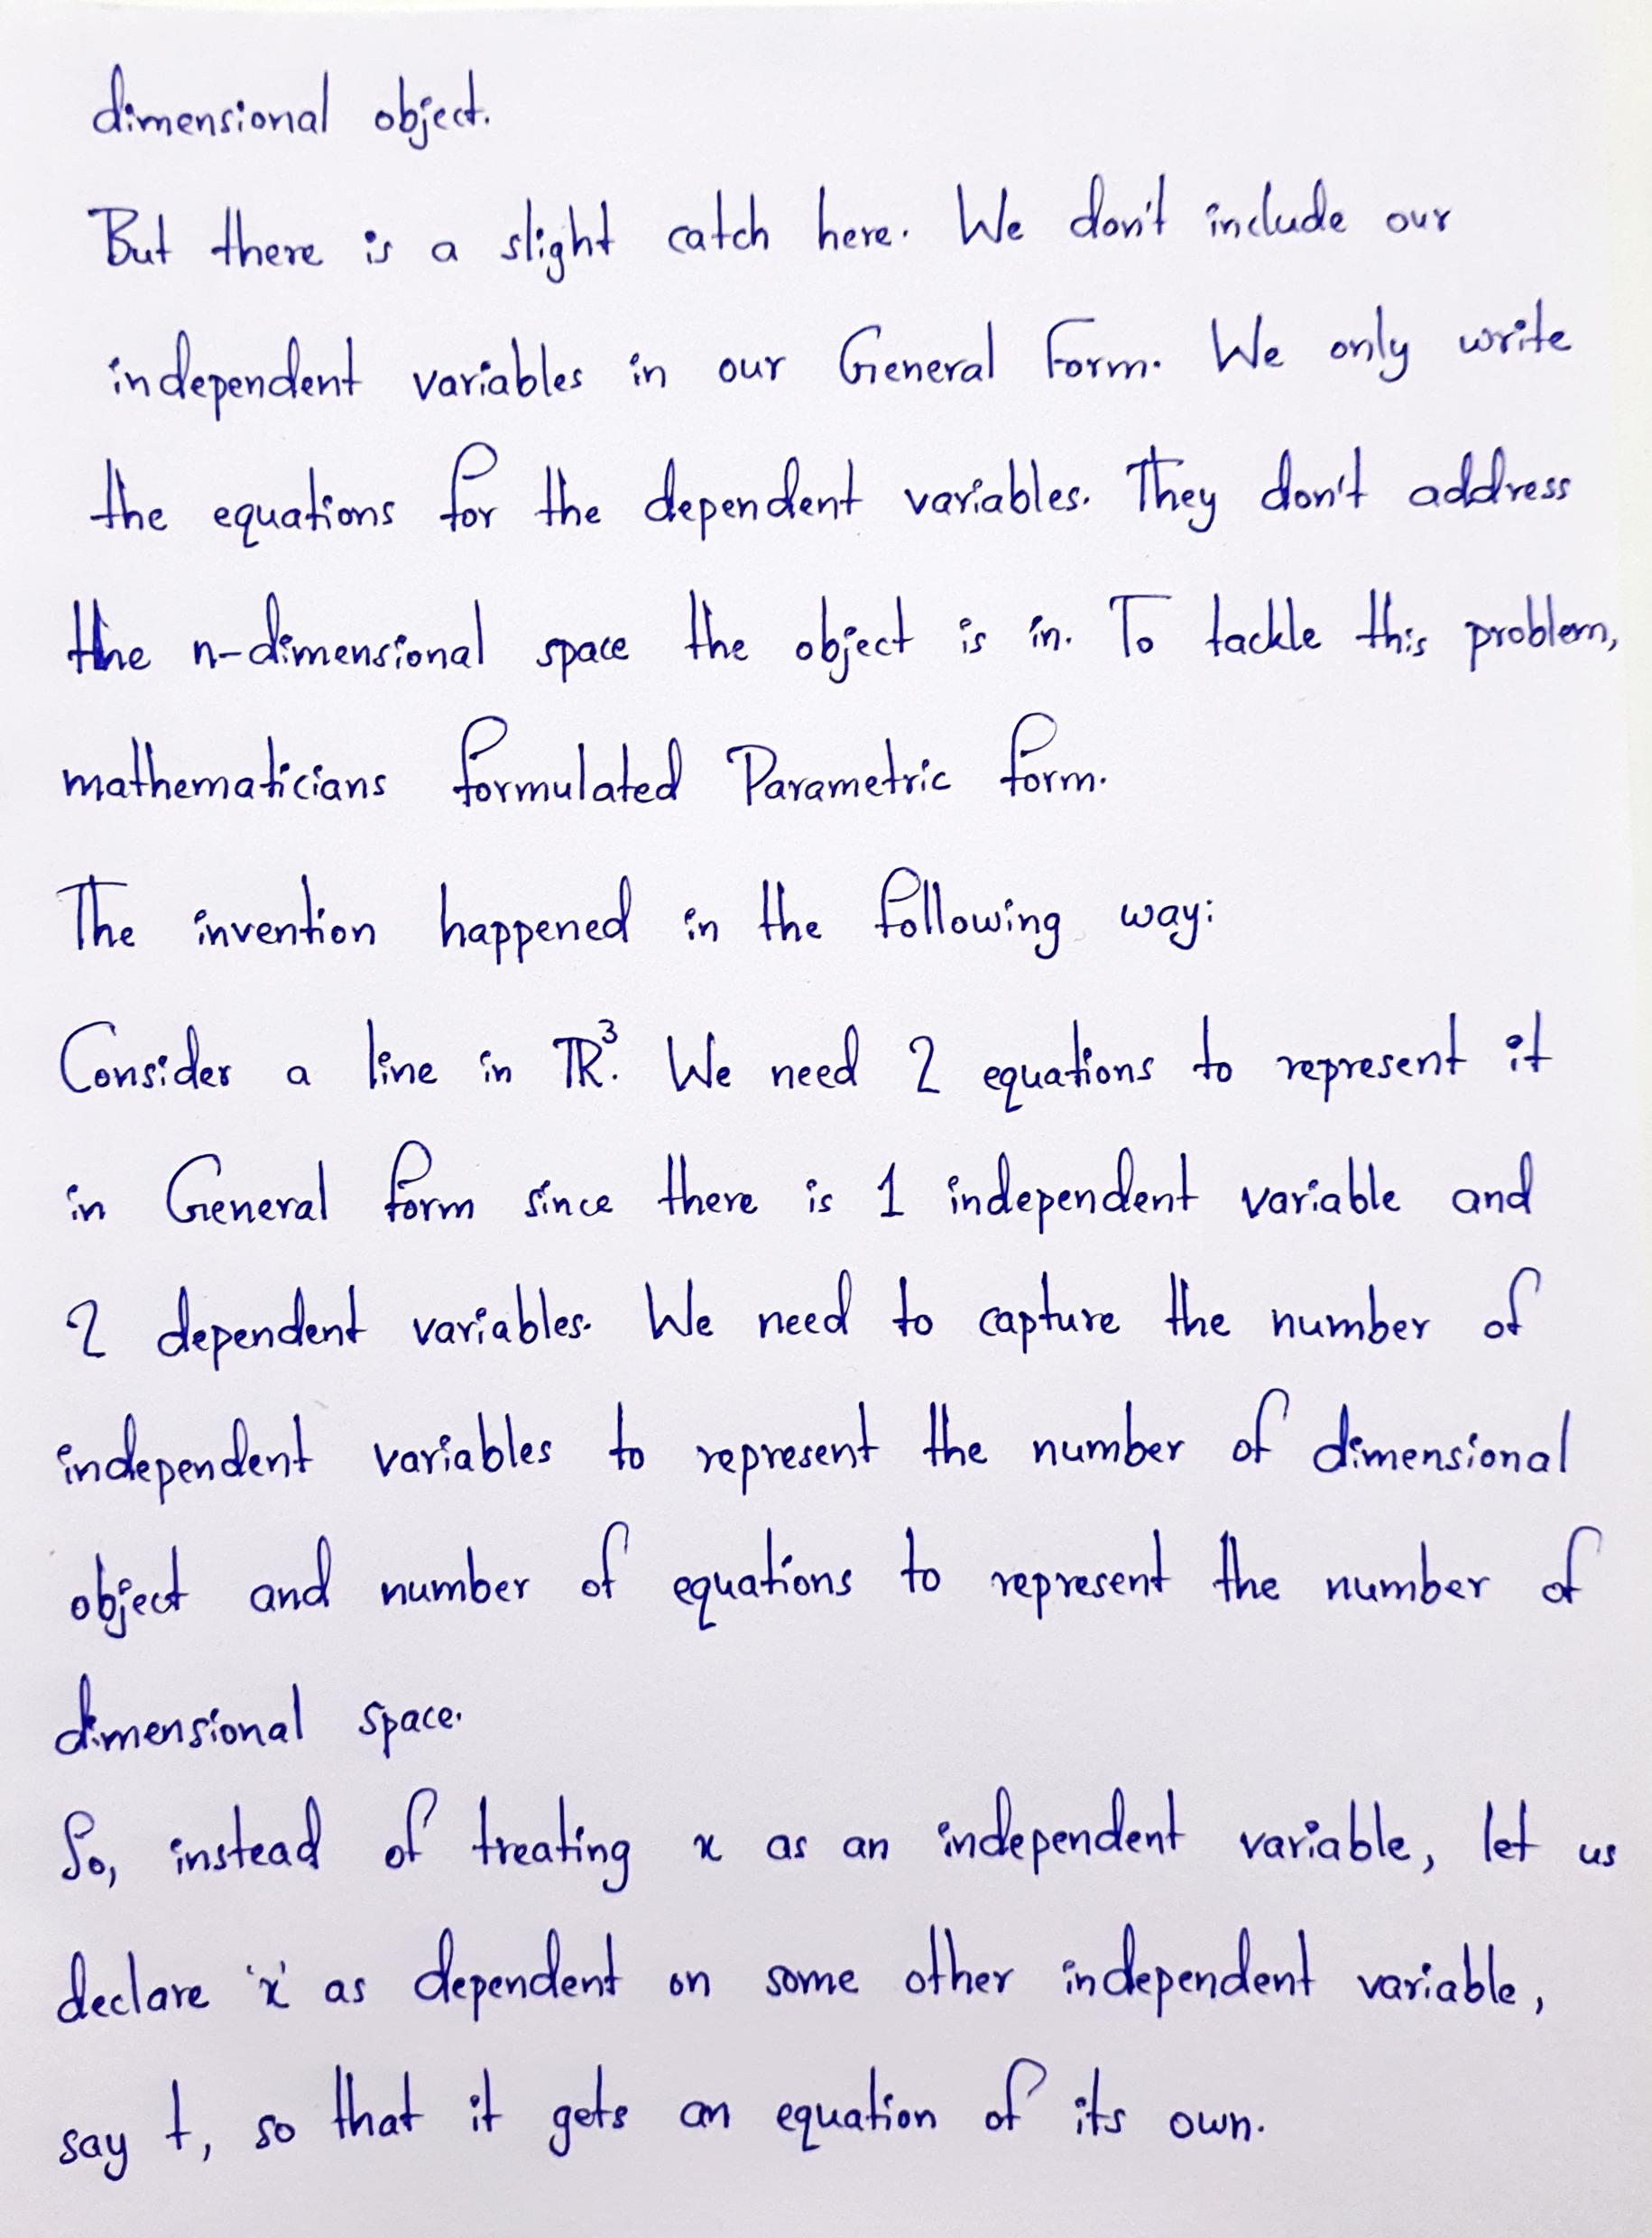 dimensional object.
But there is a slight catch here. We don't include our
independent variables in our General Form. We only write
the equations for the dependent variables. They don't address
the n-dimensional space the object is in. To tackle this problem,
mathematicians formulated Parametric form.
The invention happened in the following way:
Consider a line in ℝ³. We need 2 equations to represent it
in General form since there is 1 independent variable and
2 dependent variables. We need to capture the number of
independent variables to represent the number of dimensional
object and number of equations to represent the number of
dimensional space.
So, instead of treating x as an independent variable, let us
declare 'x' as dependent on some other independent variable,
say t, so that it gets an equation of its own.